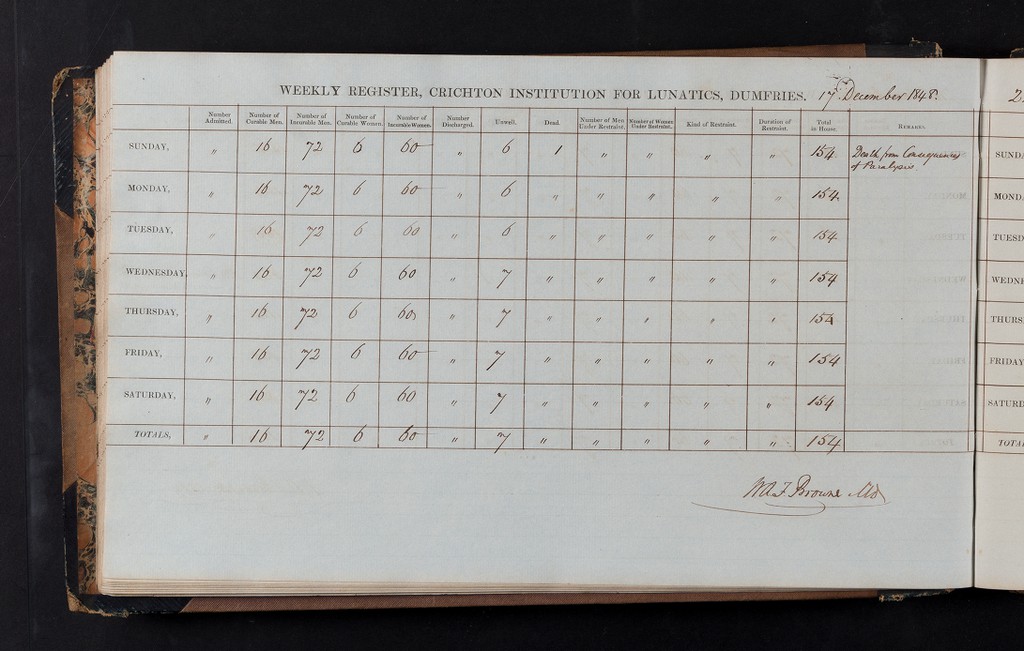 WEEKLY REGISTER, CRICHTON INSTITUTION FOR LUNATICS, DUMFRIES. 17th December 1848.
Number Admitted. Number of Curable Men. Number of Incurable Men. Number of Curable Women. Number of Incurable Women. Number Discharged. Unwell. Dead. Number of Men Under Restraint. Number of Women Under Restraint. Kind of Restraint. Duration of Restraint. Total in House. Remarks.
SUNDAY, " 16 72 6 60 " 6 1 " " " " 154 Death from Consequences
of Paralysis.
MONDAY, " 16 72 6 60 " 6 " " " " " 154.
TUESDAY, " 16 72 6 60 " 6 " " " " " 154
WEDNESDAY, " 16 72 6 60 " 7 " " " " " 154
THURSDAY, " 16 72 6 60 " 7 " " " " " 154
FRIDAY, " 16 72 6 60 " 7 " " " " " 154
SATURDAY, " 16 72 6 60 " 7 " " " " " 154
TOTALS, " 16 72 6 60 " 7 " " " " " 154
W A F Browne MD
2
SUNDA
MONDA
TUESD
WEDNE
THURS
FRIDAY
SATURD
TOTA